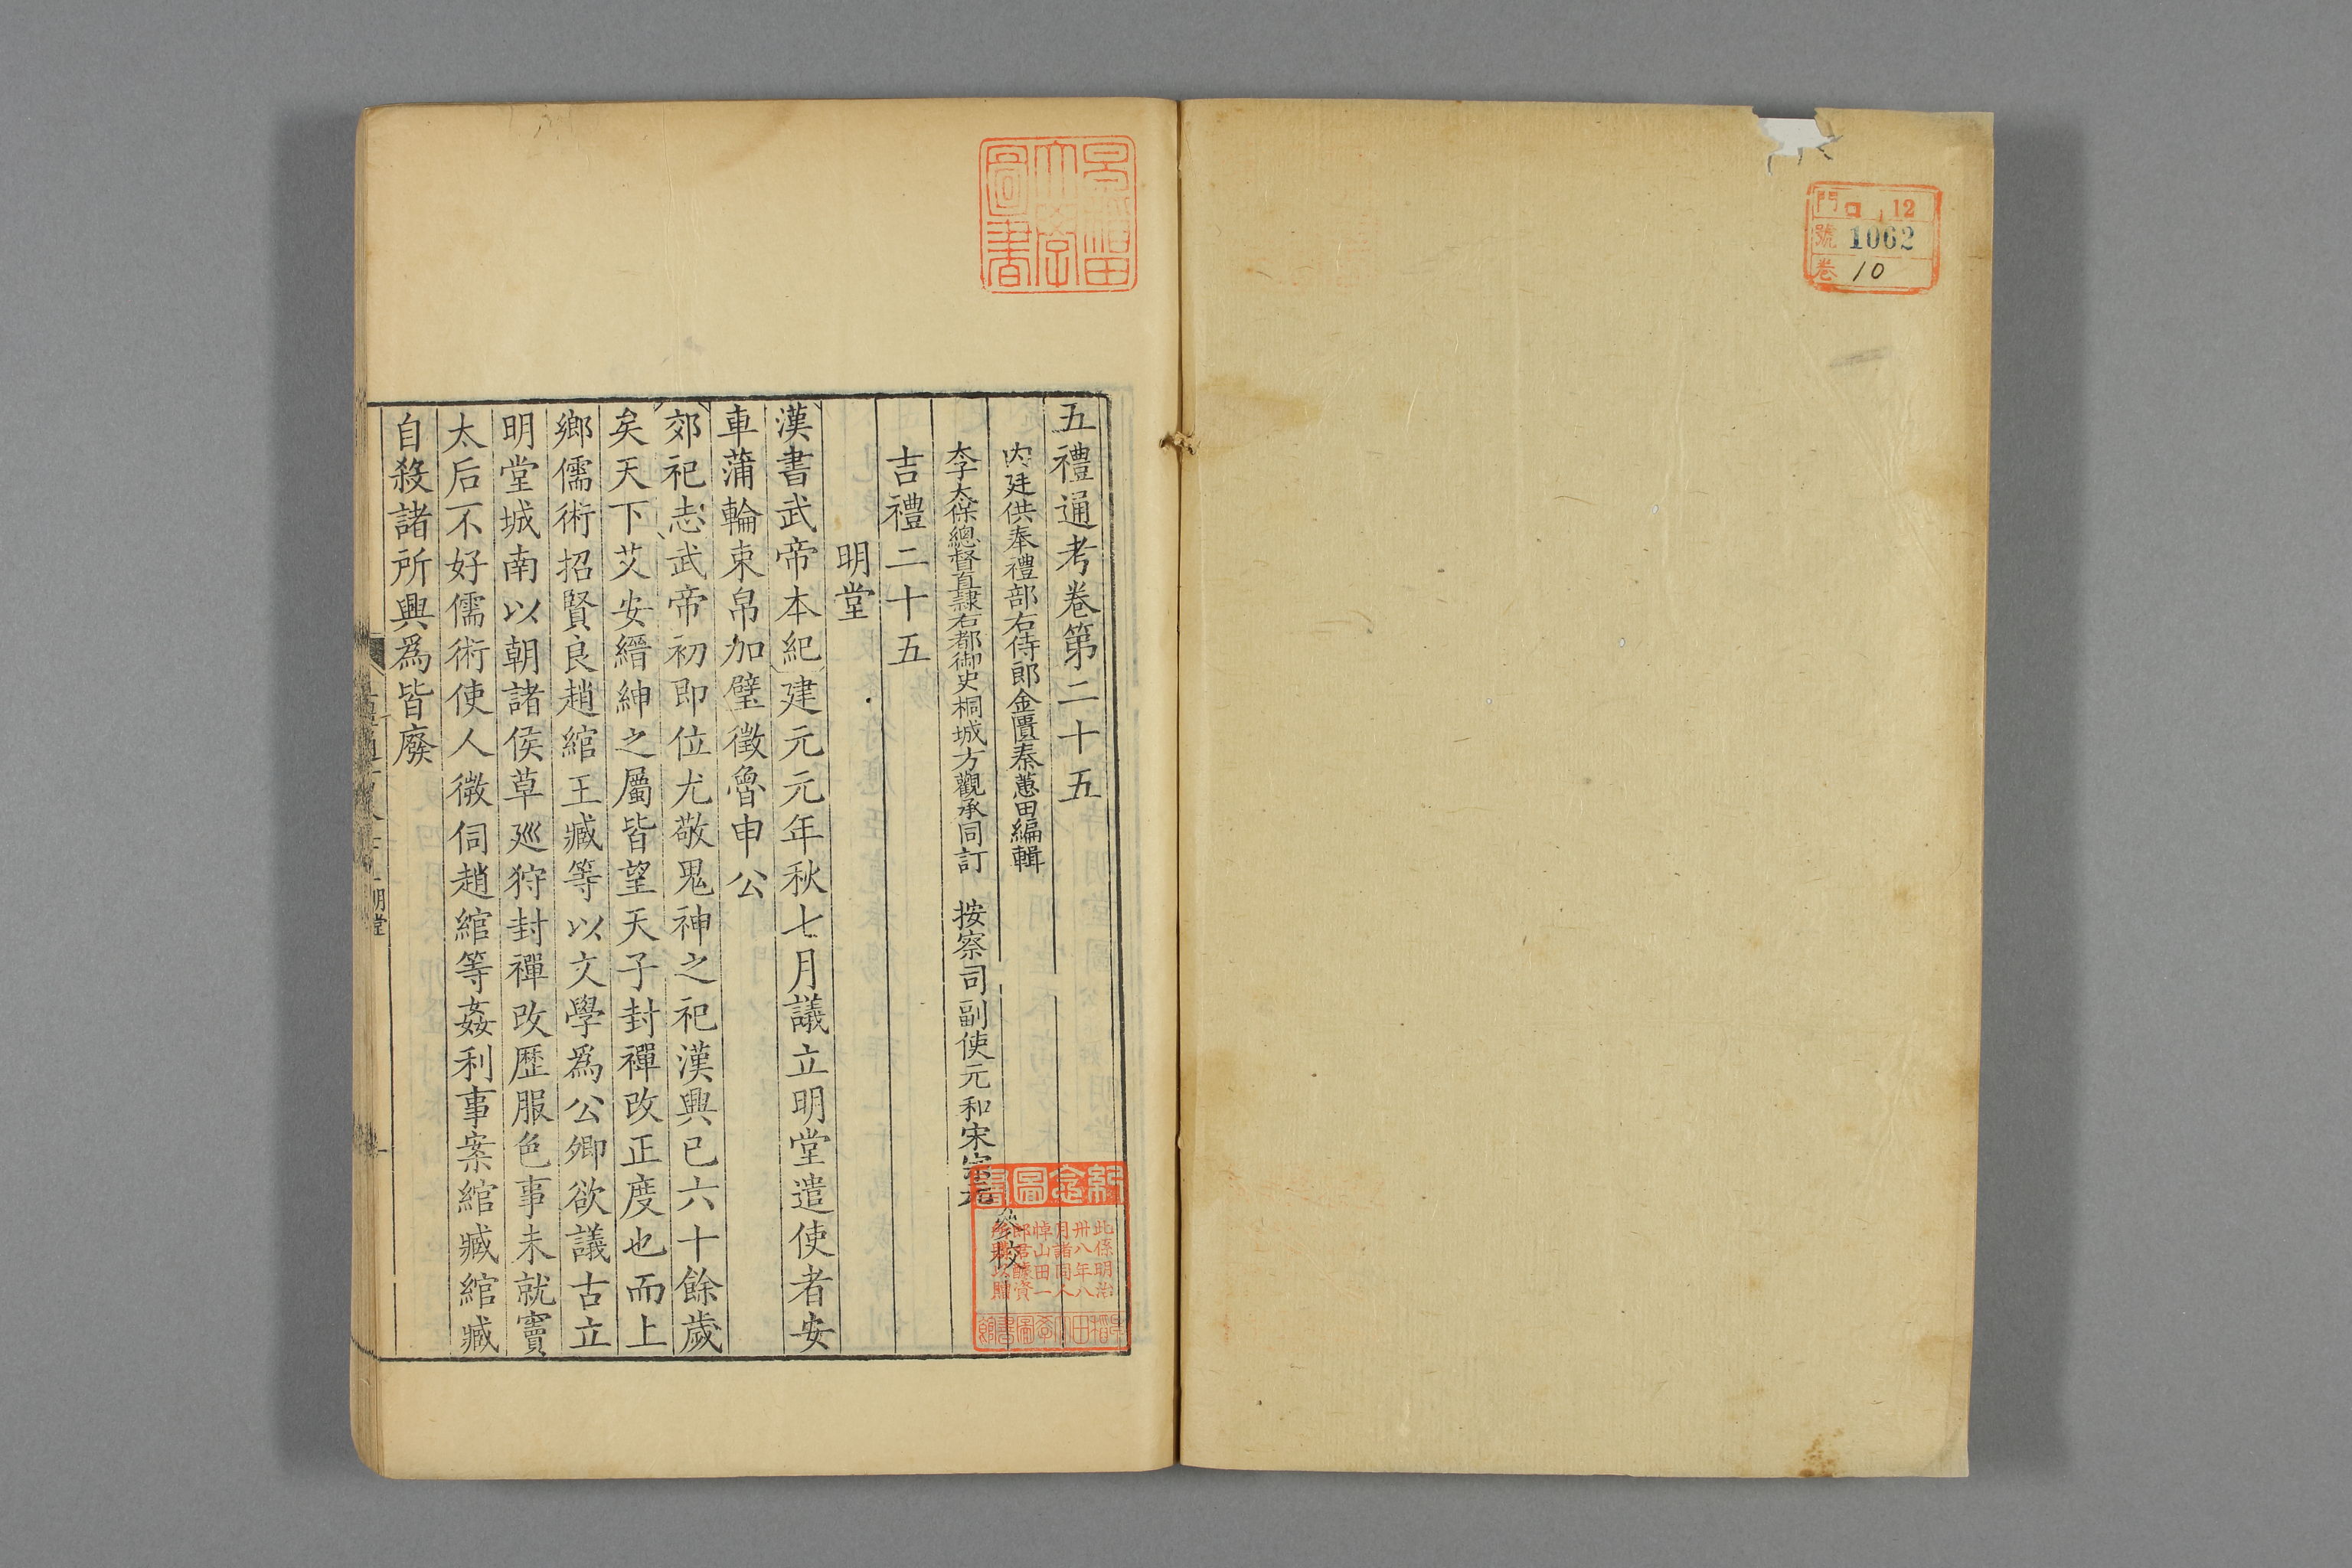 門 ロ 12
號 1062
卷 10
早稲田大學圖書
五禮通考卷第二十五
内廷供奉禮部右侍郎金匱秦蕙田編輯
太子太保總督直隸右都御史桐城方觀承同訂 按察司副使元和宋宗元參校
吉禮二十五
明堂
漢書武帝本紀建元元年秋七月議立明堂遣使者安
車蒲輪束帛加璧徵魯申公
郊祀志武帝初即位尤敬鬼神之祀漢興已六十餘歲
矣天下艾安縉紳之屬皆望天子封禪改正度也而上
鄉儒術招賢良趙綰王臧等以文學爲公卿欲議古立
明堂城南以朝諸侯草廵狩封禪改歷服色事未就竇
太后不好儒術使人微伺趙綰等姦利事案綰臧綰臧
自殺諸所興爲皆廢
明堂
紀念圖書
此係明治
卅八年八
月諸同人
悼山田一
郎君醵資
以贈